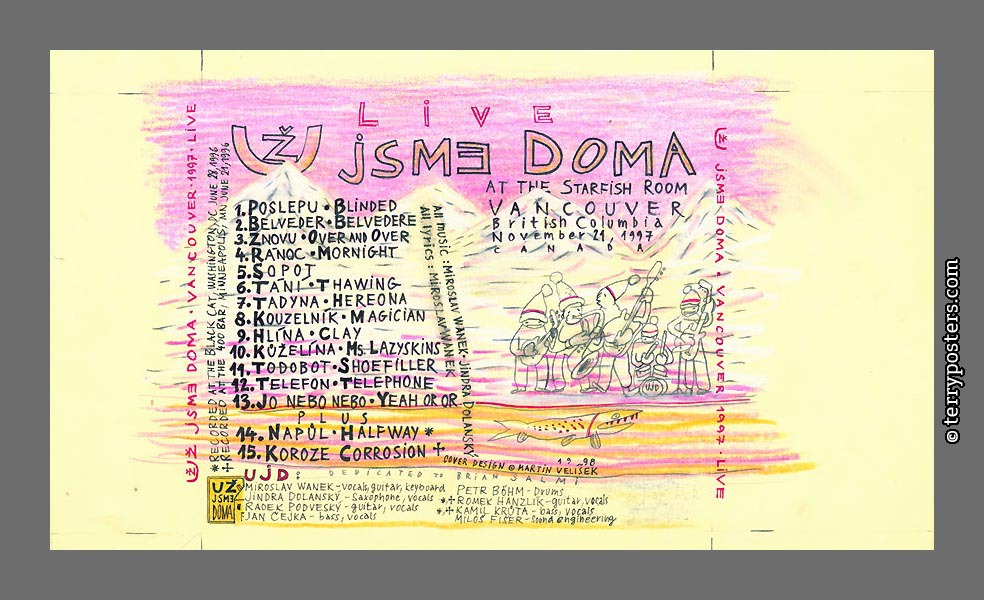 LIVE
UŽ JSME DOMA
AT THE STARFISH ROOM
VANCOUVER
British Columbia
November 21, 1997
CANADA
1. POSLEPU • BLINDED
2. BELVEDER • BELVEDERE
3. ZNOVU • OVER AND OVER
4. RANOC • MORNIGHT
5. SOPOT
6. TÁNÍ • THAWING
7. TADYNA • HEREONA
8. KOUZELNÍK • MAGICIAN
9. HLÍNA • CLAY
10. KŮŽELÍNA • MS. LAZYSKINS
11. TODOBOT • SHOEFILLER
12. TELEFON • TELEPHONE
13. JO NEBO NEBO • YEAH OR OR
PLUS
14. NAPŮL • HALFWAY *
15. KOROZE CORROSION +
All music: MIROSLAV WANEK • JINDRA DOLANSKÝ
All lyrics: MIROSLAV WANEK
* RECORDED AT THE BLACK CAT, WASHINGTON, DC JUNE 28, 1996
+ RECORDED AT THE 400 BAR, MINNEAPOLIS, MN JUNE 21, 1996
UŽ JSME DOMA • VANCOUVER • 1997 • LIVE
UŽ JSME DOMA • VANCOUVER 1997 • LIVE
UJD
COVER DESIGN © MARTIN VELÍŠEK 1998
UJD:
DEDICATED TO BRIAN SALMI
UŽ
JSME
DOMA
MIROSLAV WANEK - vocals, guitar, keyboard
JINDRA DOLANSKÝ - Saxophone, vocals
RADEK PODVESKÝ - guitar, vocals
JAN CEJKA - bass, vocals
PETR BÖHM - drums
*,+ ROMEK HANZLÍK - guitar, vocals
*,+ KAMIL KRŮTA - bass, vocals
MILOŠ FIŠER - Sound engineering
© terryposters.com